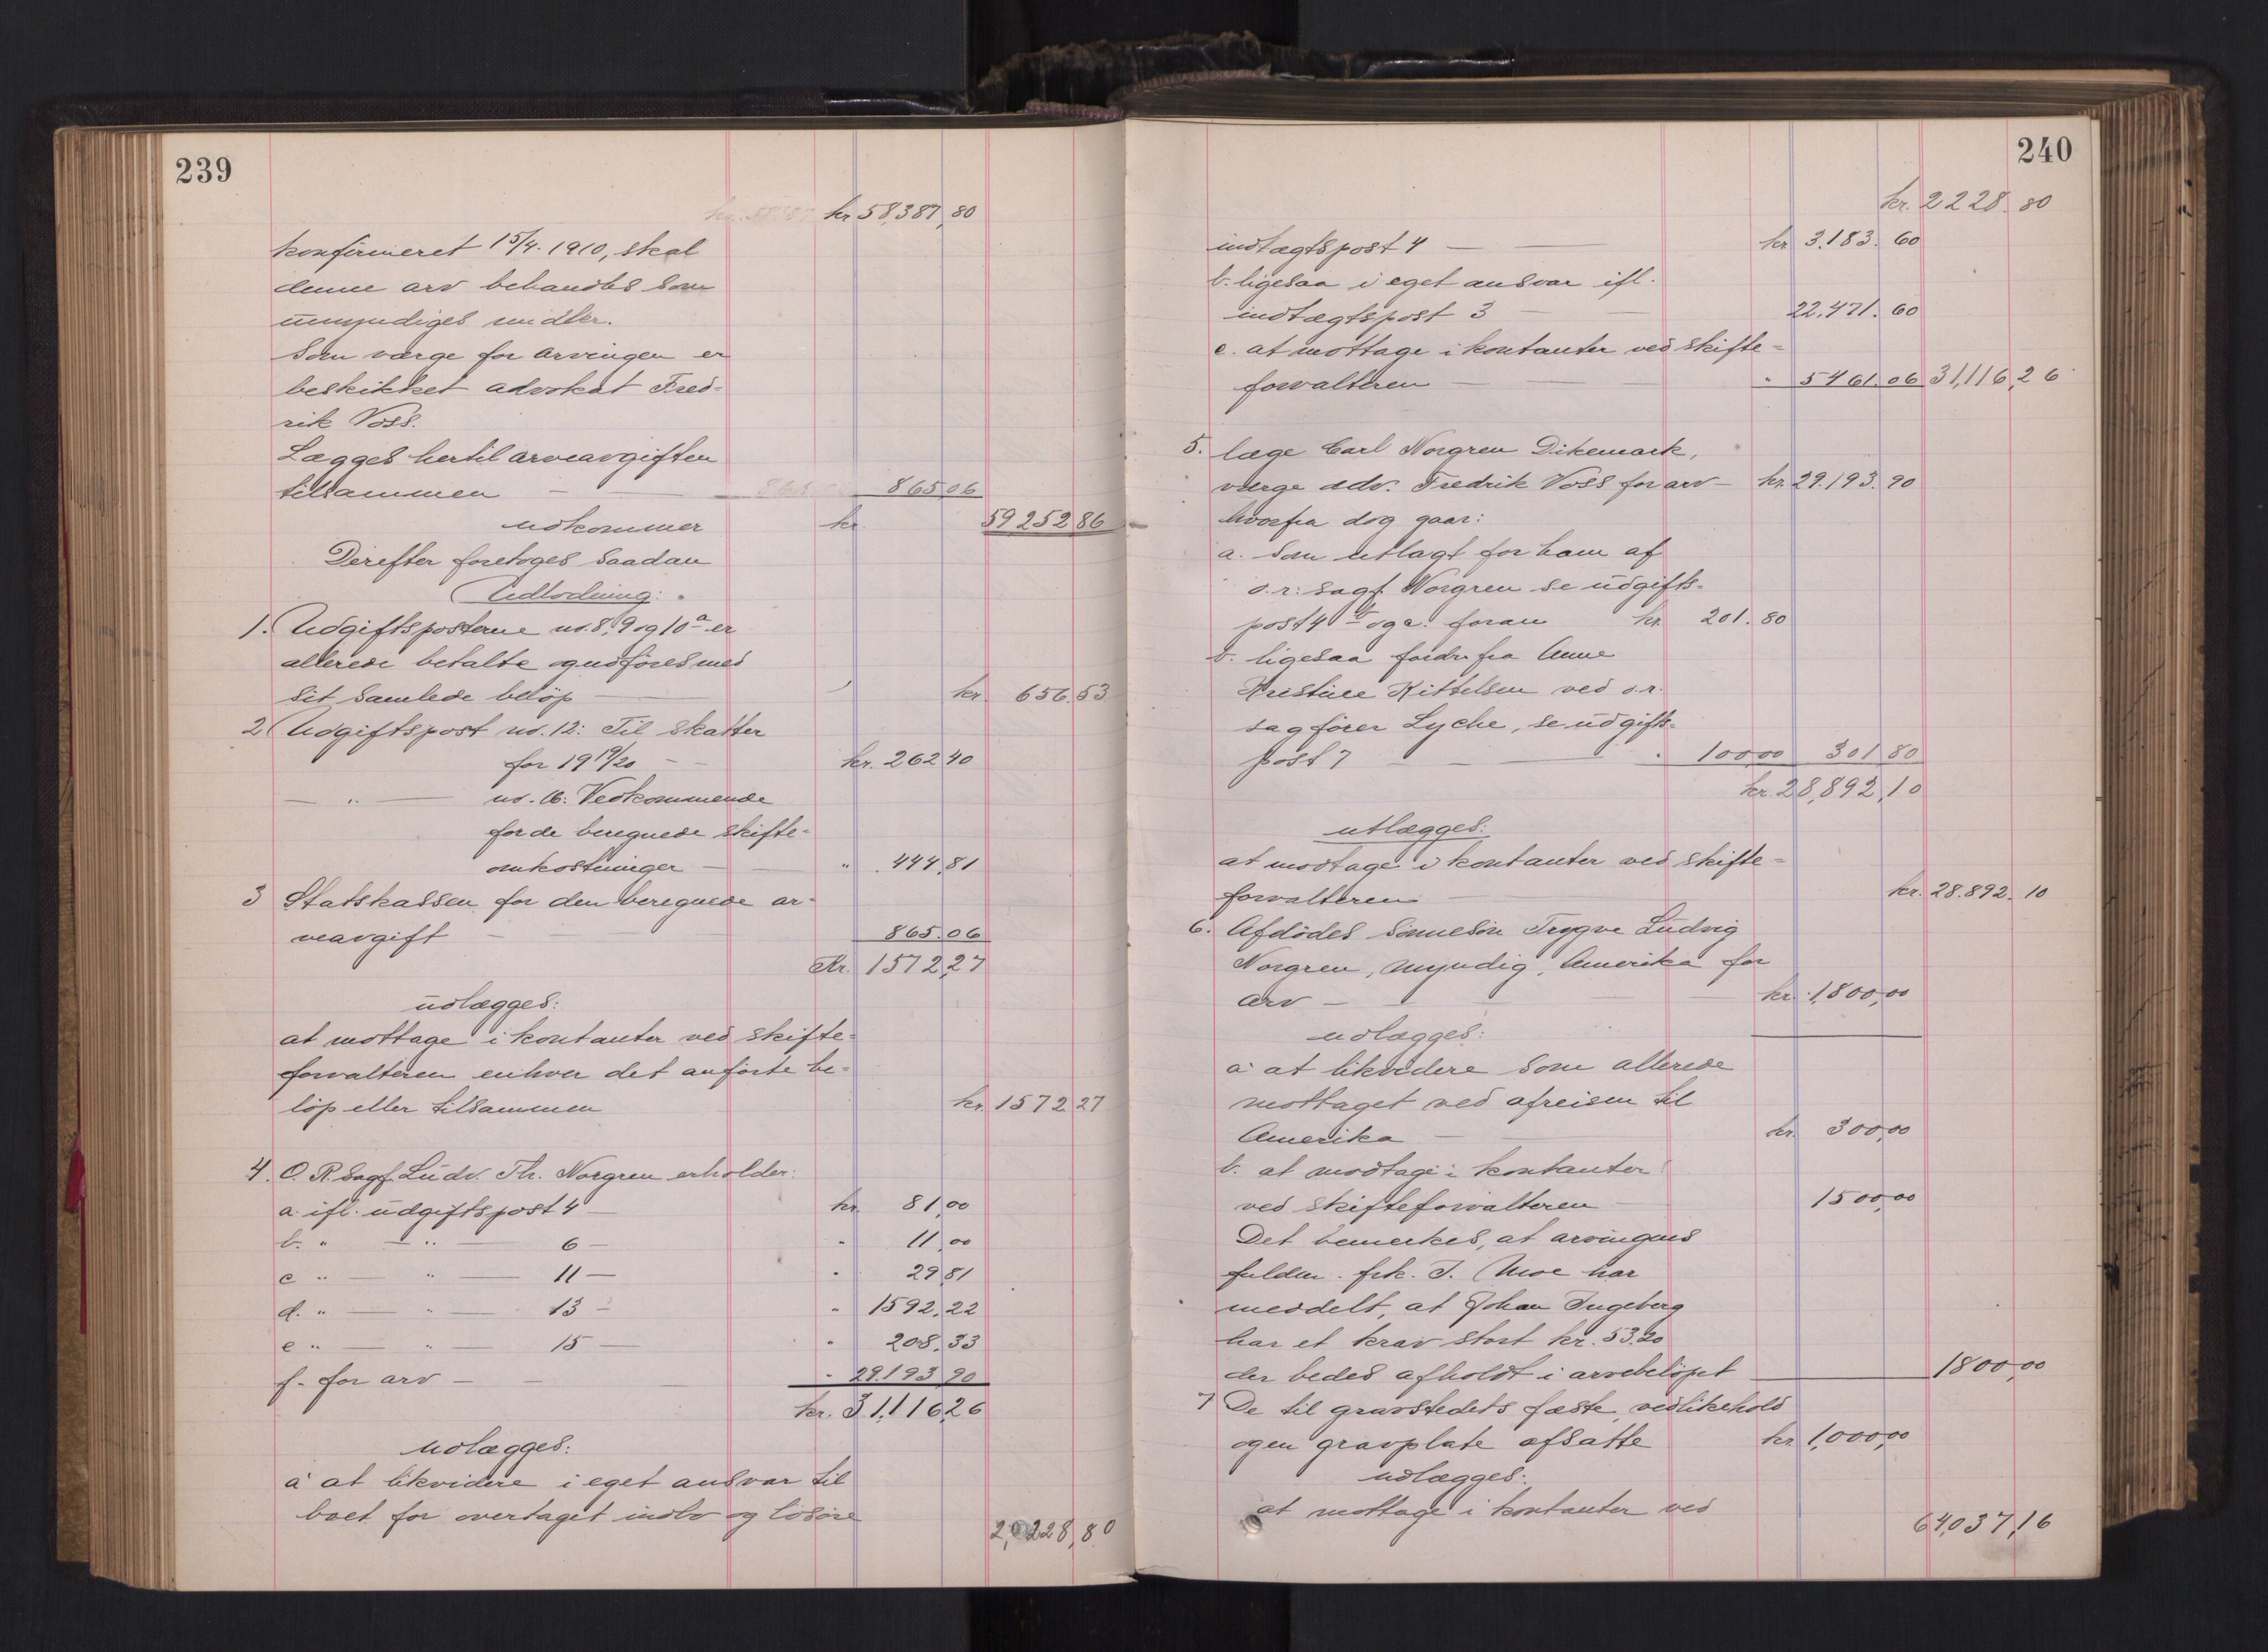 239
kr 58,387,80
konfirmeret 15/4. 1910, skal
denne arv behandles som
umyndiges midler.
Som værge for arvingen er
beskikket advokat Fred-
rik Voss.
Lægges hertil arveavgiften
tilsammen — — 865,06
udkommer kr. 59,252,86
Derefter foretoges saadan
Udlodning:
1. Udgiftsposterne no. 8, 9 og 10a er
allerede betalte og udføres med
sit samlede beløp — kr. 656.53
2 Udgiftspost no. 12: Til skatter
for 1919/20 — — kr. 262,40
— " — no. 16: Vedkommende
for de beregnede skifte-
omkostninger — — " 444,81
3 Statskassen for den beregnede ar-
veavgift — — — 865.06
Kr. 1572,27
udlægges:
at mottage i kontanter ved skifte-
forvalteren enhver det anførte be-
løp eller tilsammen kr. 1572,27
4. O. R. Sagf. Ludv. Th. Norgren erholder:
a. ifl. udgiftspost 4 — kr. 81,00
b. " — " — 6 — " 11,00
c " — " — 11 — " 29,81
d. " — " — 13 — " 1592,22
e " — " — 15 — " 208.33
f. for arv — — — " 29.193,90
kr. 31,116,26
udlægges:
a. at likvidere i eget ansvar til
boet for overtaget indbo og løsøre
2,228,80
240
kr. 2228.80
indtægtspost 4 — — kr. 3.183.60
b. ligesaa i eget ansvar ifl.
indtægtspost 3 — — 22,471.60
c. at mottage i kontanter ved skifte-
forvalteren — — " 5461.06 31,116,26
5. læge Carl Norgren Dikemark,
værge adv. Fredrik Voss for arv — kr. 29.193.90
hvorfra dog gaar:
a. Som utlagt for ham af
o.r. sagf. Norgren se udgifts-
post 4 b og c. foran kr. 201.80
b. ligesaa fordr. fra Anne
Kristine Kittelsen ved o.r.
sagfører Lyche, se udgifts-
post 7 — — — " 100,00 301,80
kr. 28,892,10
utlægges:
at modtage i kontanter ved skifte-
forvalteren — kr. 28.892.10
6. Afdødes sønnesøn Trygve Ludvig
Norgren, myndig, Amerika for
arv — — — kr. 1,800,00
udlægges:
a. at likvidere som allerede
mottaget ved afreisen til
Amerika — — kr. 300,00
b. at modtage i kontanter
ved skifteforvalteren — 1500,00
Det bemerkes, at arvingens
fuldm. frk. J. Moe har
meddelt, at Johan Ingeberg
har et krav stort kr. 53.20
der bedes afholdt i arvebeløpet — 1800,00
7 De til gravstedets fæste, vedlikehold
og en gravplate afsatte kr. 1,000,00
udlægges:
at mottage i kontanter ved
64,037,16